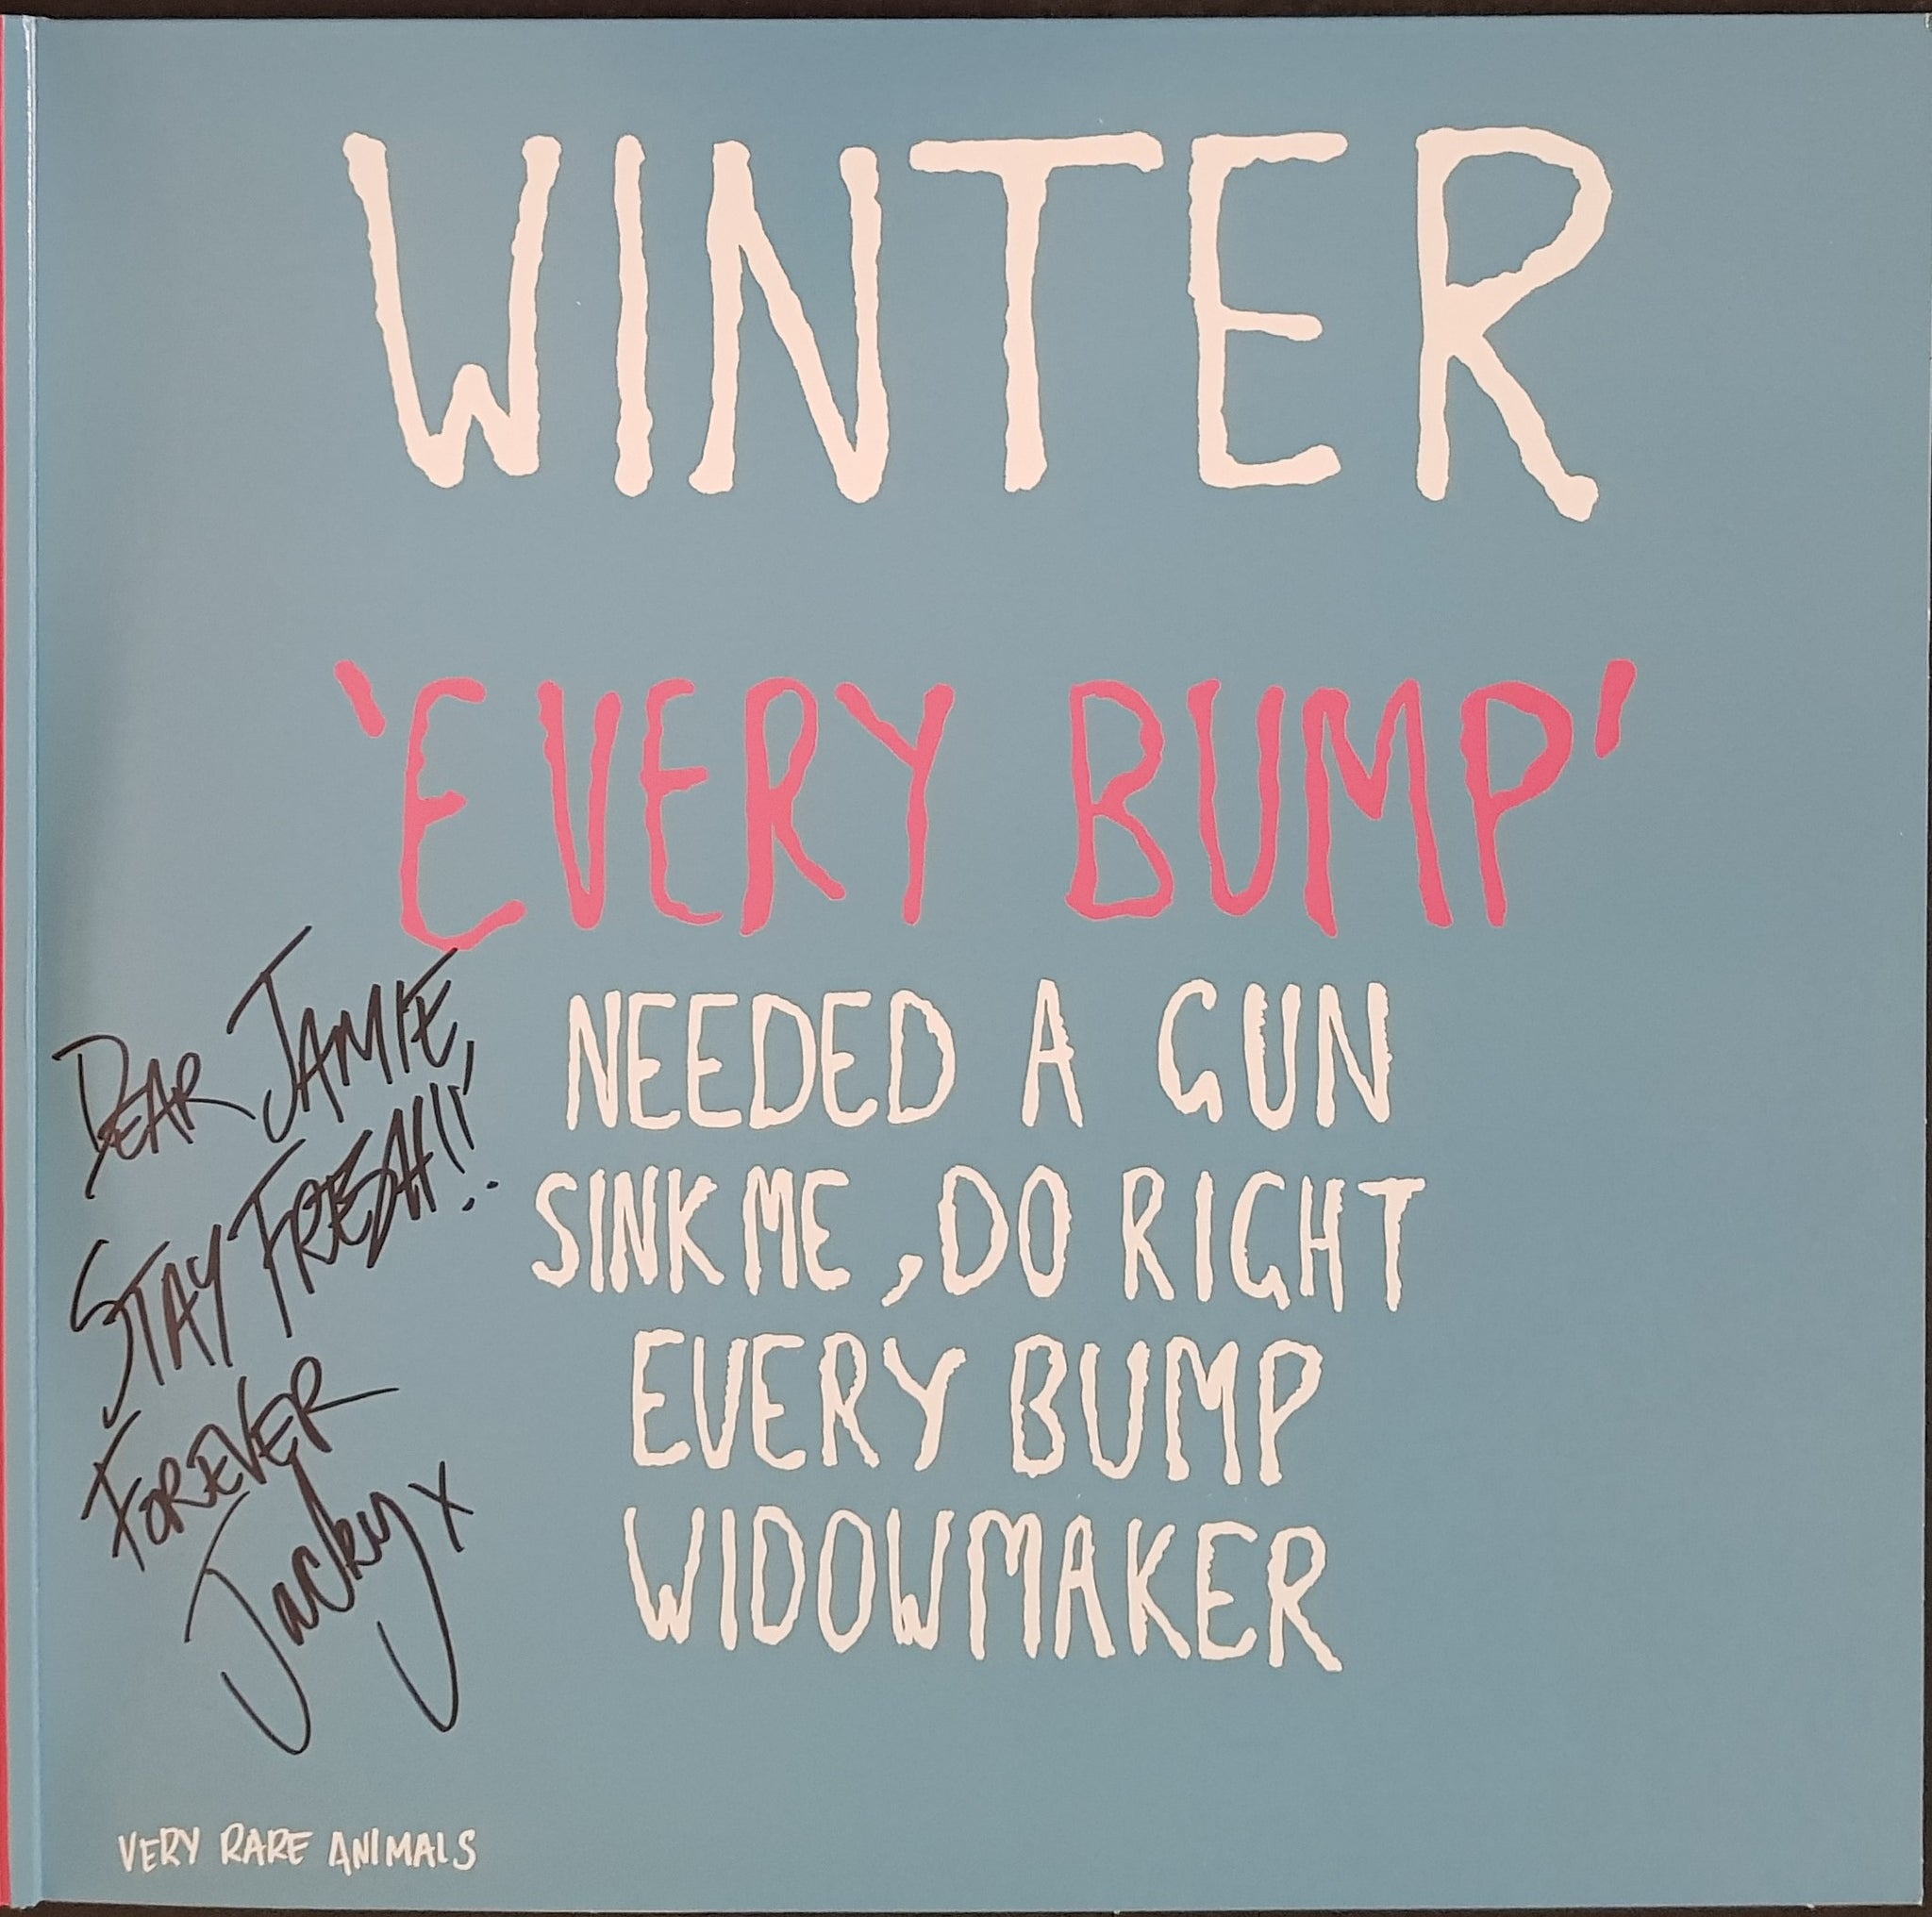 WINTER
'EVERY BUMP'
NEEDED A GUN
SINK ME, DO RIGHT
EVERY BUMP
WIDOWMAKER
DEAR JAMIE,
STAY FRESH!!
FOREVER
Jacky x
VERY RARE ANIMALS